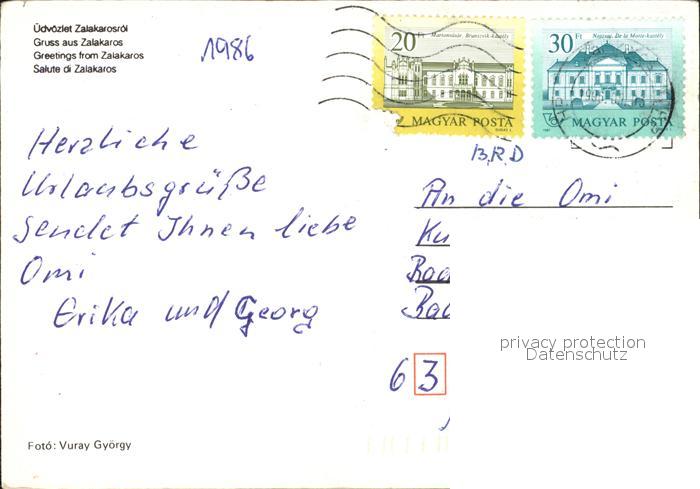 Üdvözlet Zalakarosról
Gruss aus Zalakaros
Greetings from Zalakaros
Salute di Zalakaros
1986
20 Ft Martonvásár, Brunszvik-kastély
MAGYAR POSTA
30 Ft Nagytét, De la Motte-kastély
MAGYAR POSTA
B.R.D
Herzliche
Urlaubsgrüße
sendet Ihnen liebe
Omi
Erika und Georg
An die Omi
Ku
Bad
Bad
63
privacy protection
Datenschutz
Fotó: Vuray György